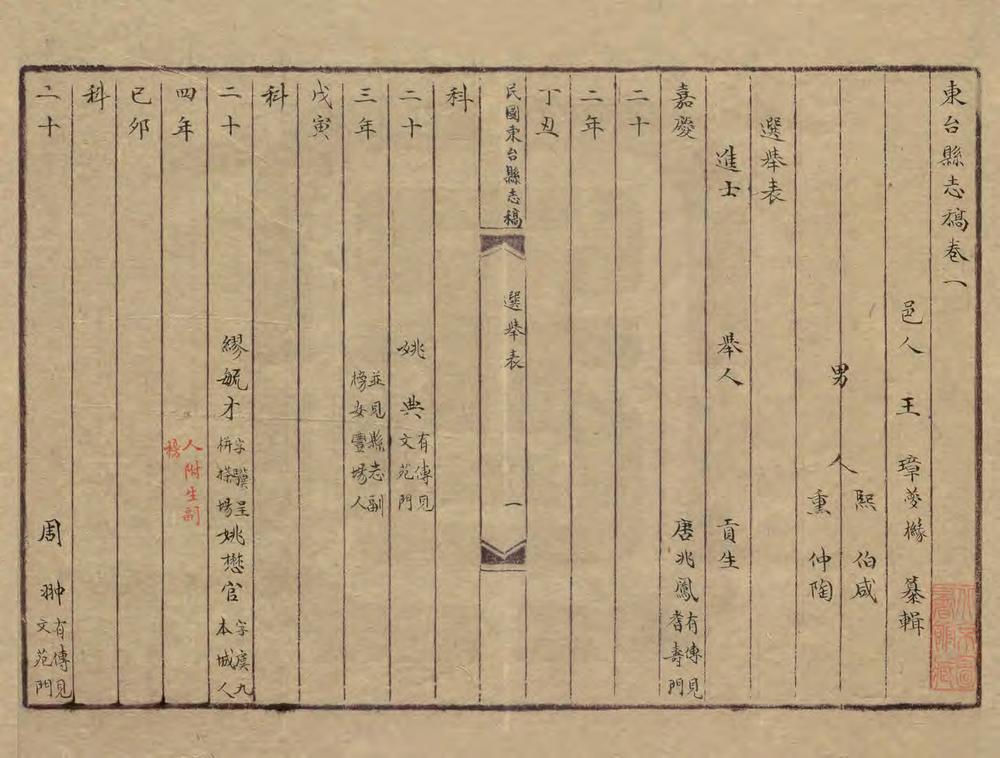 東台縣志稿卷一
邑人 王璋夢橼 纂輯
男 熙伯咸
人 熏仲陶
選舉表
進士 舉人 貢生
嘉慶 唐兆鳳 有傳見耆壽門
二十
二年
丁丑
民國東台縣志稿 選舉表 一
科
二十 姚典 有傳見文苑門
三年 並見縣志副榜安豐場人
戊寅
科
二十 繆毓才 字驥呈栟搽場 姚懋官 字虞九本城人
四年 人附生副榜
己卯
科
二十 周翀 有傳見文苑門